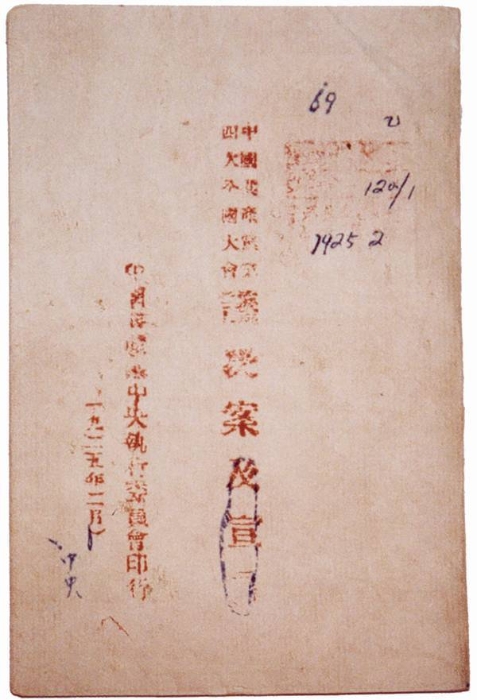 69
120/1
1925 2
中國共產黨第
四次全國大會
議決案及宣言
中國共產黨中央執行委員會印行
一九二五年二月
中央